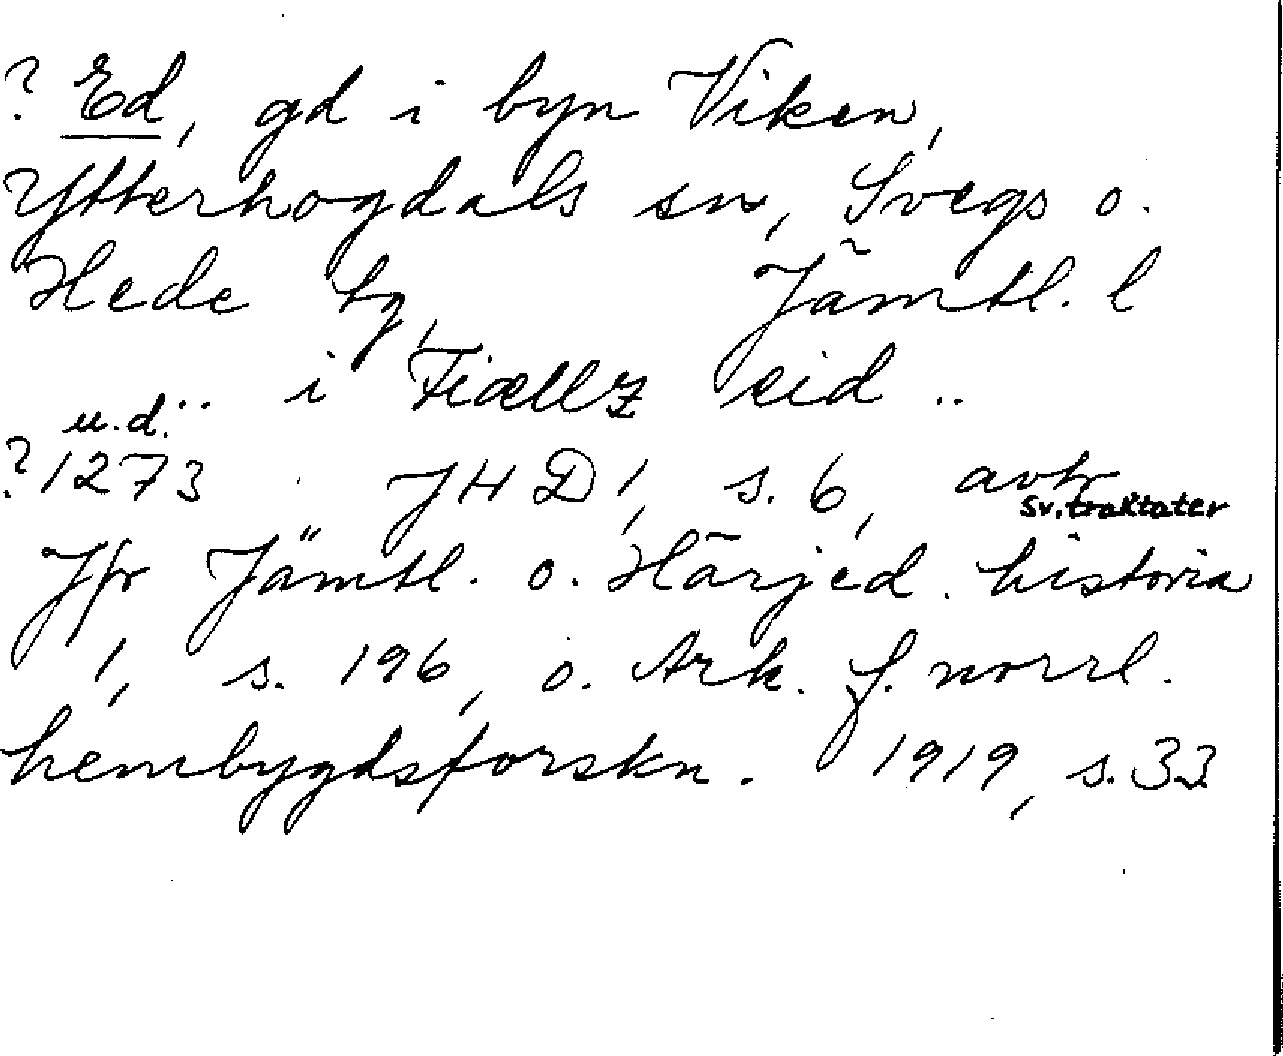 ? Ed, gd i byn Viken,
Ytterhogdals sn, Svegs o.
Hede tg, Jämtl. l
.. i Fiællz eid ..
u.d.
? 1273 JHD 1, s. 6, avtr
sv. traktater
Jfr Jämtl. o. Härjed. historia
1, s. 196, o. Ark. f. norrl.
hembygdsforskn. 1919, s. 33